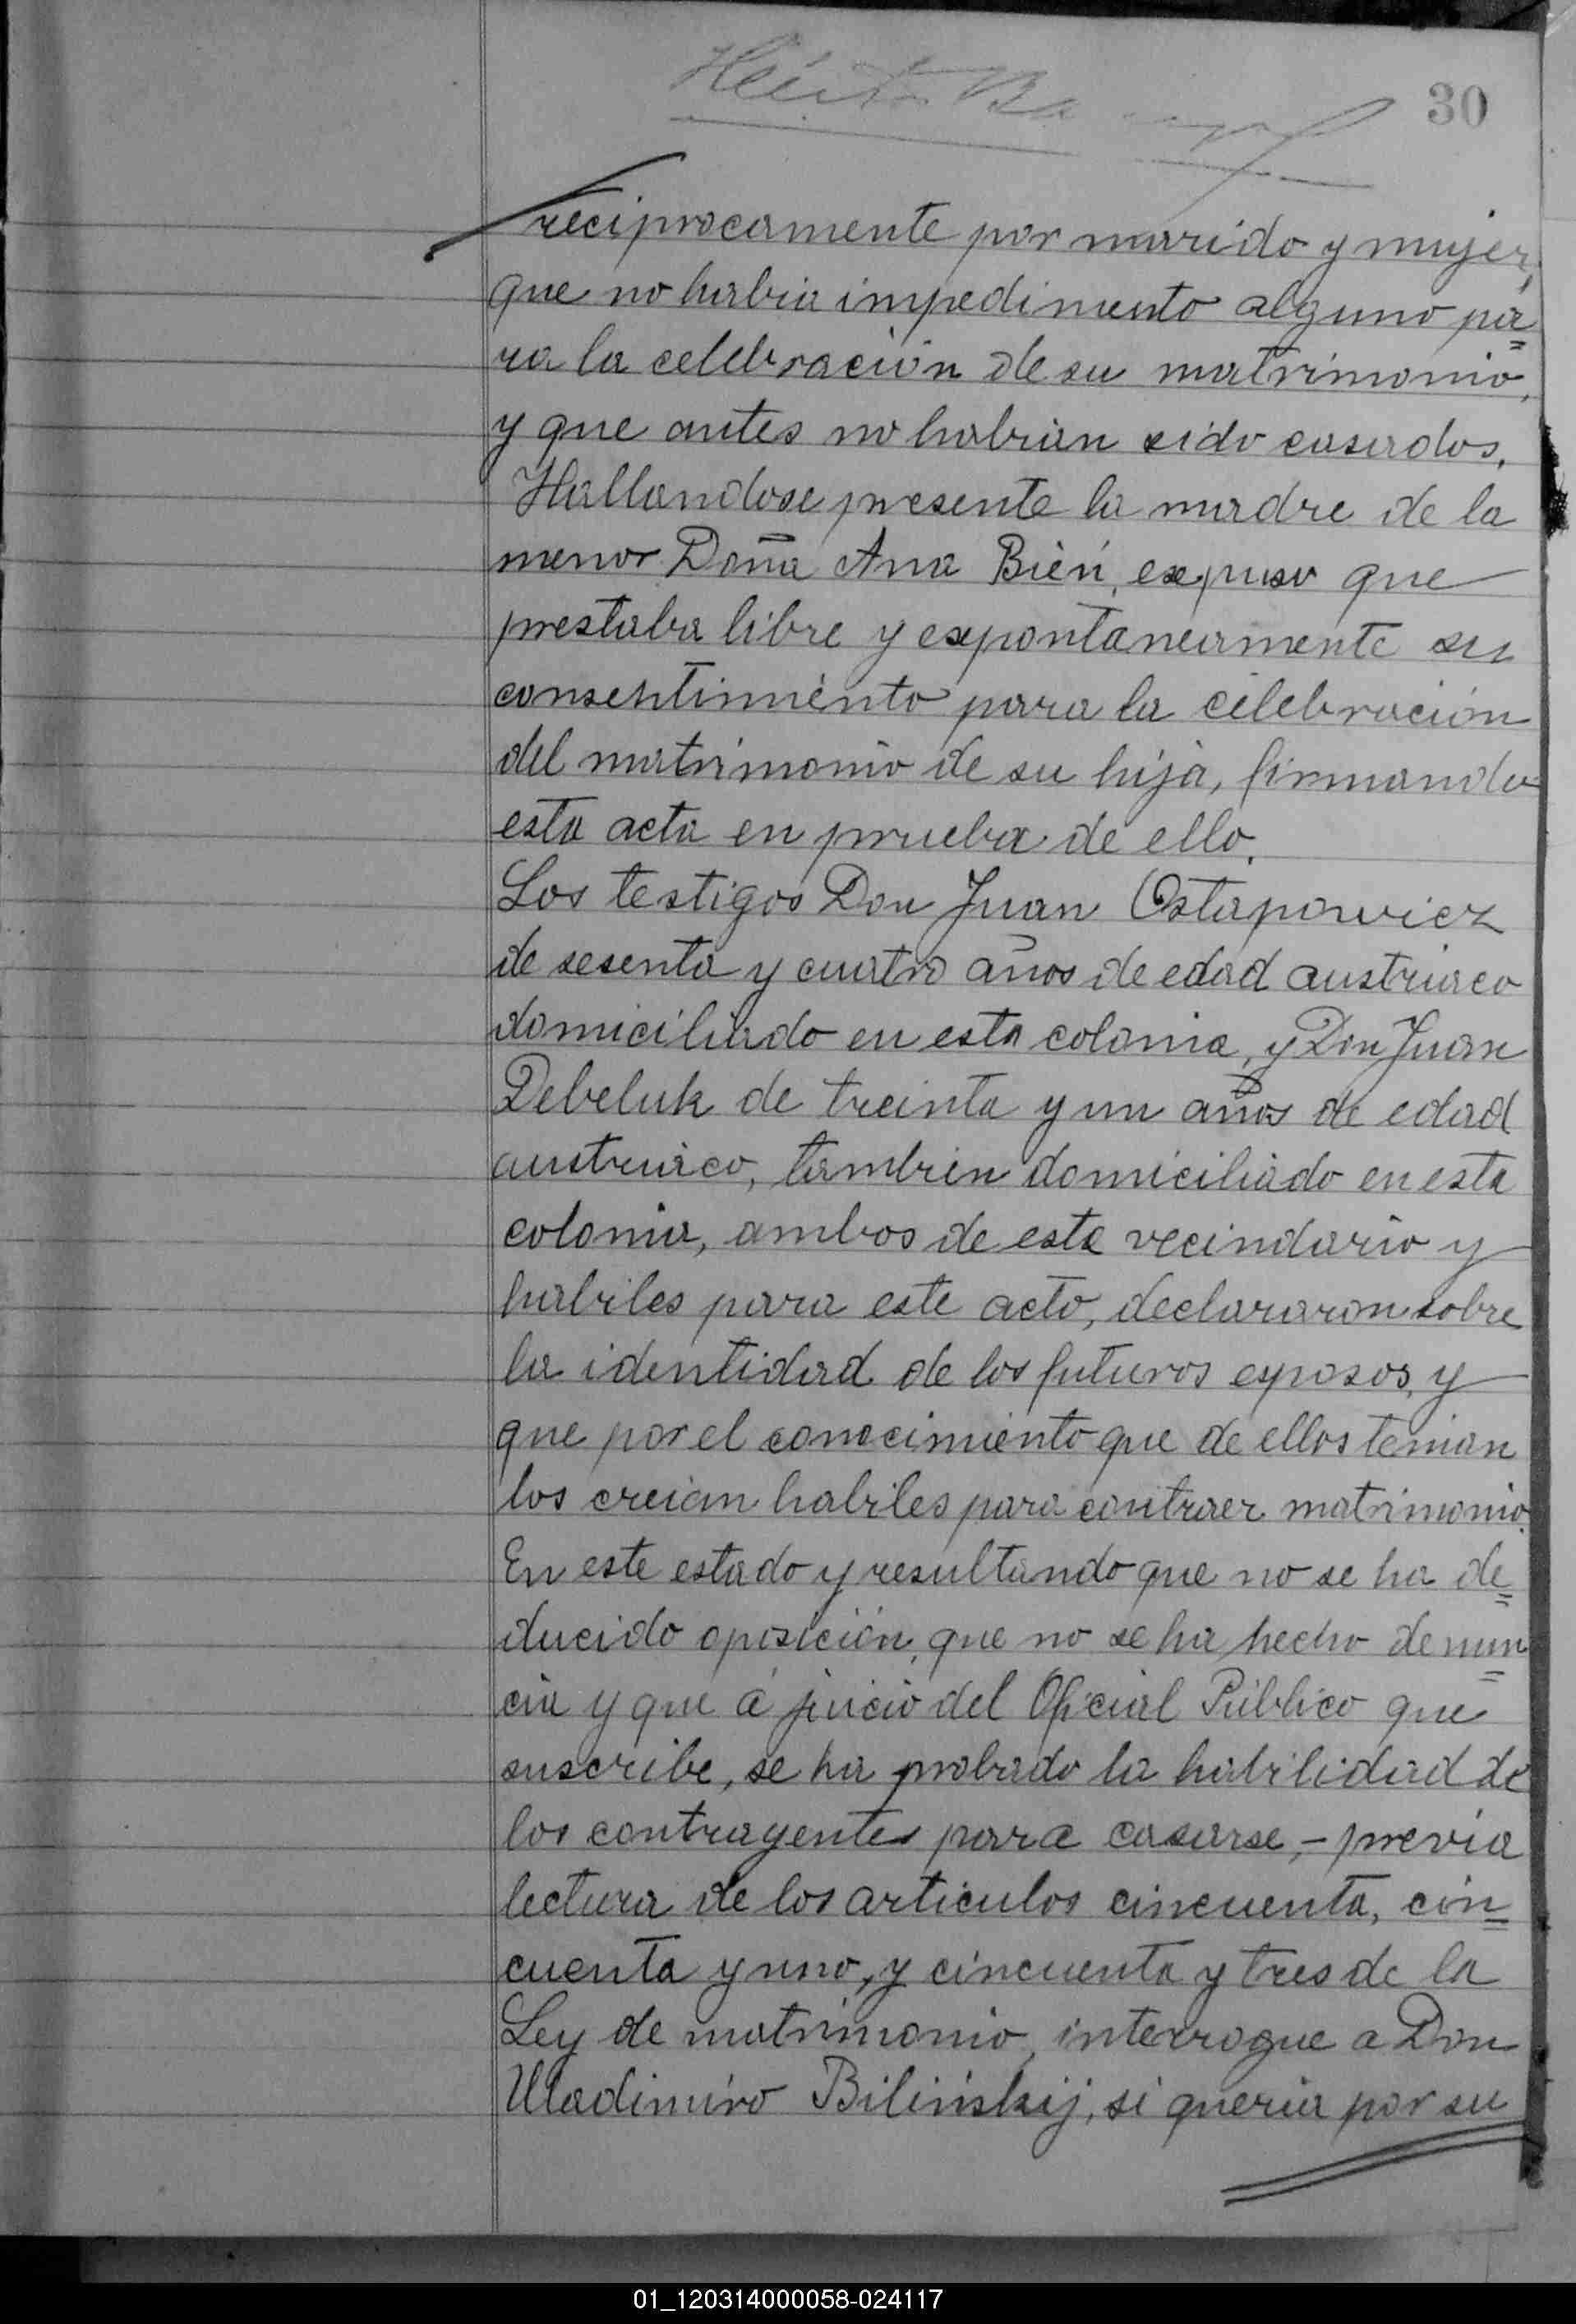 30
reciprocamente por marido y mujer,
que no habia impedimento alguno pa=
ra la celebración de su matrimonio,
y que antes no habian sido casados.
Hallandose presente la madre de la
menor Doña Ana Bień, expuso que
prestaba libre y expontaneamente su
consentimiento para la celebración
del matrimonio de su hija, firmando
esta acta en prueba de ello.
Los testigos Don Juan Ostapowicz
de sesenta y cuatro años de edad austriaco
domiciliado en esta colonia, y Don Juan
Debeluk de treinta y un años de edad
austriaco, tambien domiciliado en esta
colonia, ambos de este vecindario y
habiles para este acto, declararon sobre
la identidad de los futuros esposos, y
que por el conocimiento que de ellos tenian
los creian habiles para contraer matrimonio.
En este estado y resultando que no se ha de=
ducido oposición, que no se ha hecho denun=
cia y que á juicio del Oficial Público que
suscribe, se ha probado la habilidad de
los contrayentes para casarse, - previa
lectura de los articulos cincuenta, cin=
cuenta y uno, y cincuenta y tres de la
Ley de matrimonio, interrogue a Don
Uladimiro Bilińskij, si queria por su
01_120314000058-024117